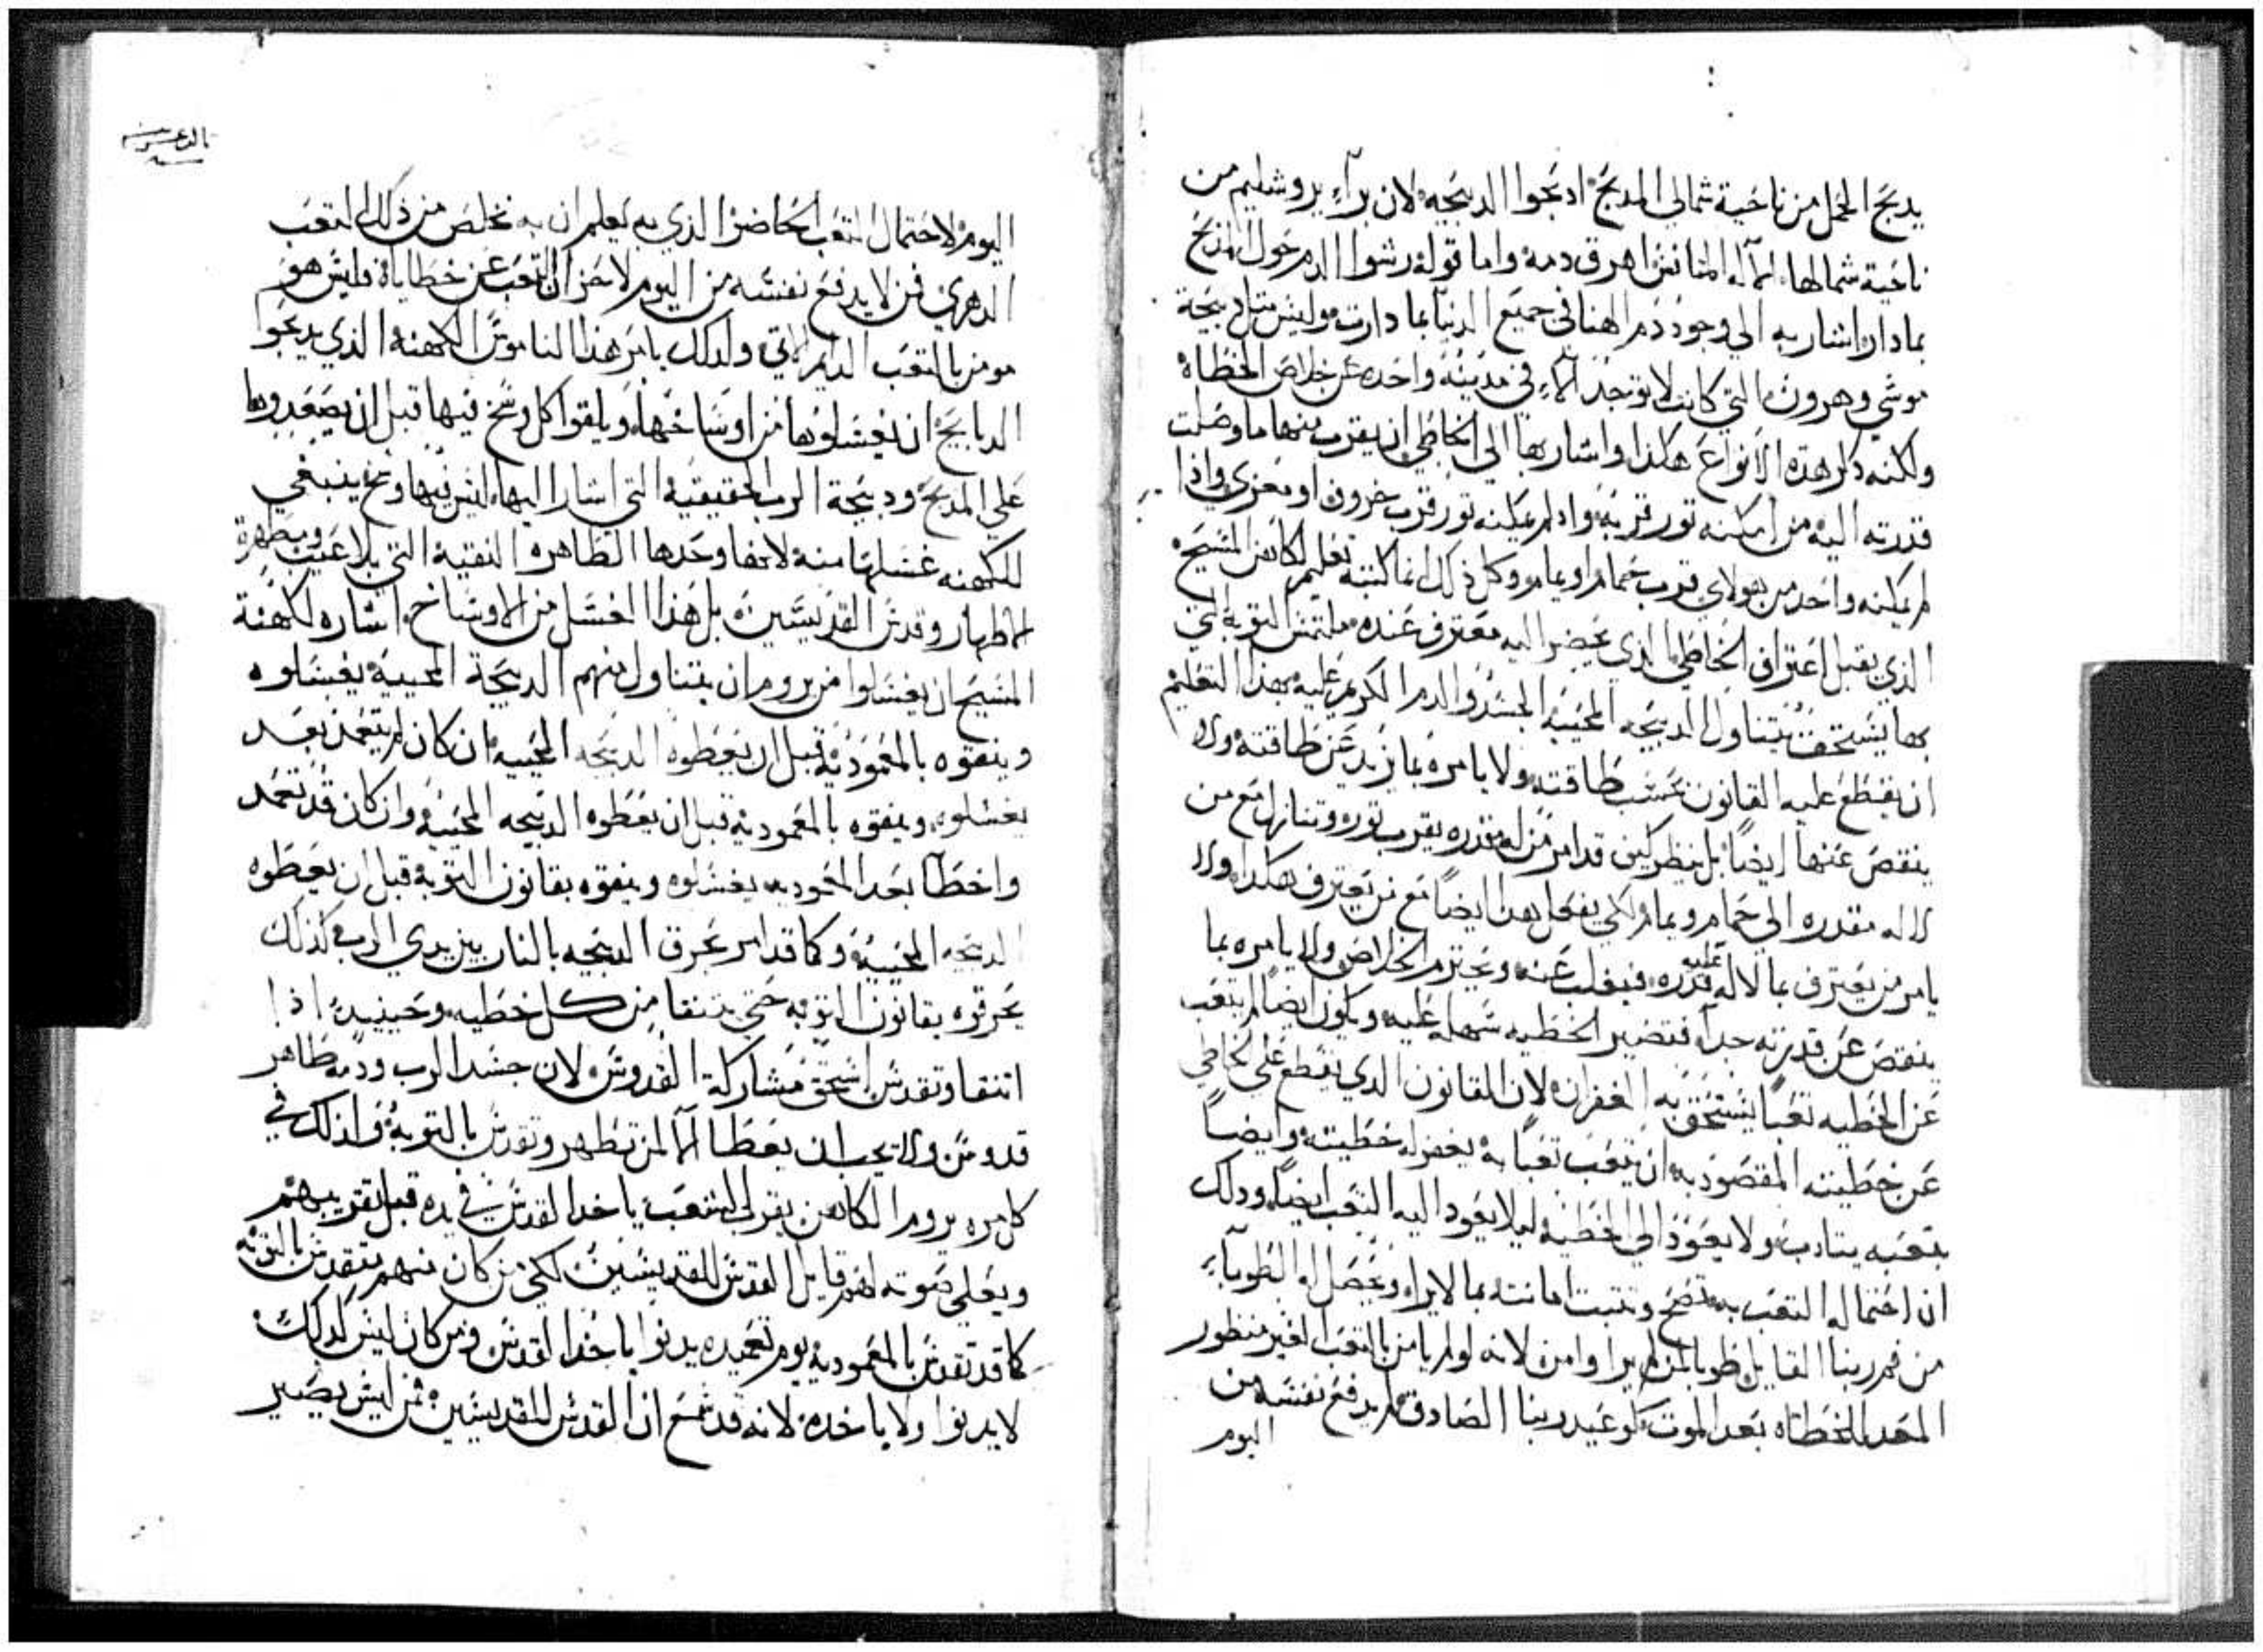 يدبح الحمل من ناحية شمالي المدبح ادبحوا الدبيحه لان براء يروشليم من
ناحية شمالها الاله المتانس اهرق دمه واما قوله رشوا الدم حول المدبح
بما دار اشار به الي وجود دم الهنا في جميع الدنيا بما دارت وليس مثل دبيحة
موسي وهرون التي كانت لا توجد الا في مدينة واحده عن خلاص الخطاه
ولكنه دكر هذه الانواع هكذا واشار بها الي الخاطي ان يقرب منهما ما وصلت
قدرته اليه من امكنه تور قربه وادا لم يمكنه تور قرب خروف او معزي واذا
لم يمكنه واحد من هولاي قرب حمام او يمام وكل ذلك انما كتبته تعليم لكاهن المسيح
الذي يقبل اعتراف الخاطي الذي يحضر اليه معترف عنده ملتمس التوبه التي
بها يستحق يتناول الدبيحه المحييه الجسد والدم الكريم عليه بهذا التعليم
ان يقطع عليه القانون بحسب طاقته ولا يامره بما يزيد عن طاقته ولا
ينقص عنها ايضا بل ينظر كيف قد امر من له مقدره يقرب توره وتنازل مع من
لا له مقدره الي حمام ويمام لكي يفعل هذا ايضا مع من يعترف هكدا ولا
يامر من يعترف بما لا له عليه قدره فيغلب عنه ويحترم الخلاص ولا يامره بما
ينقص عن قدرته جدا فتصير الخطيه سهله عليه ويكون ايضا لم يتعب
عن الخطيه تعبا يستحق به الغفران لان القانون الدي يقطع علي الخاطي
عن خطيته المقصود به ان يتعب تعبا به يغفر له خطيته وايضا
بتعبه يتادب ولا يعود الي الخطيه ليلا يعود اليه التعب ايضا ودلك
ان احتماله التعب به تصح وتتبت امانته بما لا يراه ويحصل له الطوباء
من فم ربنا القايل طوبا لمن لم يرا وامن لانه لو لم يامن بالتعب الغير منظور
المعد للخطاه بعد الموت كوعيد ربنا الصادق لم يدفع نفسه من
اليوم
اليوم لاحتمال التعب الحاضر الذي به يعلم ان به تخلص من ذلك التعب
الدهري فمن لا يدفع نفسه من اليوم لاحزان التعب عن خطاياه فليس هو
مومن بالتعب الدايم الاتي ولدلك يامر هذا الناموس الكهنه الذي يدبحوا
الدبايح ان يغسلوها من اوساخها ويلقوا كل وسخ فيها قبل ان يصعدوها
علي المدبح ودبيحة الرب الحقيقيه التي اشار اليها ليس فيها وسخ ينبغي
للكهنه غسلها منه لانها وحدها الطاهره النقيه التي بلا عيب ومطهرة
الاطهار وقدس القديسين بل هذا الغسل من الاوساخ اشاره لكهنة
المسيح ان يغسلوا من يروم ان يتناول منهم الدبيحة المحييه يغسلوه
وينقوه بالمعموديه قبل ان يعطوه الدبيحه المحييه ان كان لم يتعمد بعد
يغسلوه وينقوه بالمعموديه قبل ان يعطوه الدبيحه المحييه وان كان قد تعمد
واخطا بعد المعموديه يغسلوه وينقوه بقانون التوبه قبل ان يعطوه
الدبيحه المحييه وكما قد امر بحرق الدبيحه بالنار بين يدي الرب كذلك
يحرقوه بقانون التوبه حتي يتنقا من كل خطيه وحينيد اذا
اتنقا وتقدس استحق مشاركة القدوس لان جسد الرب ودمه طاهر
قدوس ولا يجب ان يعطا الا لمن تطهر وتقدس بالتوبه ولذلك في
كل مره يروم الكاهن يقرب الشعب ياخد القدس في يده قبل تقريبهم
ويعلي صوته لهم قايل القدس للقديسين لكي من كان منهم متقدس بالتوبه
كما قد تقدس بالمعموديه يوم تعميده يدنوا ياخد القدس ومن كان ليس كدلك
لا يدنوا ولا ياخده لانه قد سمع ان القدس للقديسين فمن ليس يصير